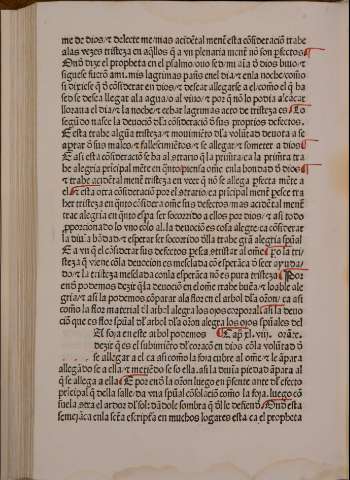 me de dios/ ⁊ delecte me/mas acidētal mentē esta cōsideraciō trahe
alas vezes tristeza en aq̄llos q̄ a vn plenaria mentē no son ꝑfectos
Onđ dize el propheta en el psalmo/ouo sed mi aīa đ dios biuo/⁊
siguese fueron ami. mis lagrimas panes en el dia/⁊ en la noche/como
si dixiese q̄ đ cōsiderar en dios/⁊ desear allegarse a el/como el q̄ ha
sed se desea llegar ala agua/o al viuo/⁊ por q̄ no lo podia alcācar
lloraua el dia/⁊ la noche/⁊ echar lagrimas acto de tristeza es Lo
segūdo nasce la deuociō đla cōsideraciō đ sus proprios defectos.
E esta trahe algūa tristeza/⁊ mouimiēto đla volūtad deuota a se
apartar đ sus males/⁊ fallescimiētos/⁊ se allegar/⁊ someter a dios
E asi esta cōsideraciō se ha al cōtrario q̄ la primera/ca la primera tra
he alegria prīcipal mēte en q̄nto piensa ome en la bondad đ dios
⁊ trahe acidētal mentē tristeza en veer q̄ no se allega ꝑfecta mēte a
el E esta otra cōsideraciō por el cōtrario/ca prīcipal mentē pesce tra
her tristeza en q̄nto cōsidera ome sus defectos/mas acidētal mentē
trae alegria en q̄nto espera ser socorrido a ellos por dios/⁊ asi todo
proporcionado lo vno cōlo al. la deuociō es cosa alegre/ca cōsiderar
la diuina bōdad/⁊ esperar ser socorrido đlla trahe grā alegria spūal
E a vn q̄ el cōsiderar sus defectos pesca tristura al ome po la tri-
steza q̄ viene cōla deuocion es mesclada cō esperāca đ seer ayuda-
do/⁊ la tristeza mesclada con la esperāca nō es pura tristeza Por
enđ podemos dezir q̄ la deuociō en el ome trahe buēa/⁊ loable ale
gria/⁊ asi la podemos cōparar ala flor en el arbol đla orōn/ca asi
como la flor material đl arbol alegra los ojos corporales asi la deuo
ciō que es flor spūal đl arbol đla orōn alegra los ojos spūales del
El foja en este arbol podemos Cap. xl. viij. orāꝛe.
dezir q̄ es el subimiēto đl coracō en dios cōla volūtad đ
se allegar a el ca asi como la foja cubre al ome/⁊ le āpara
allegādo se a ella/⁊ metiēdo se so ella. asi la diuia piedad āpara al
q̄ se allega a ella E por enđ la orōn luego en p̄sente ante đl efecto
prīcipal q̄ della salle/da vna spūal cōsolaciō como la foja. luego cō
suela cōtra el ardor đl sol/ dādole sombra q̄ đl le defiēđ Onđ esta
semejāca en la scrā escripta en muchos logares esta ca el propheta